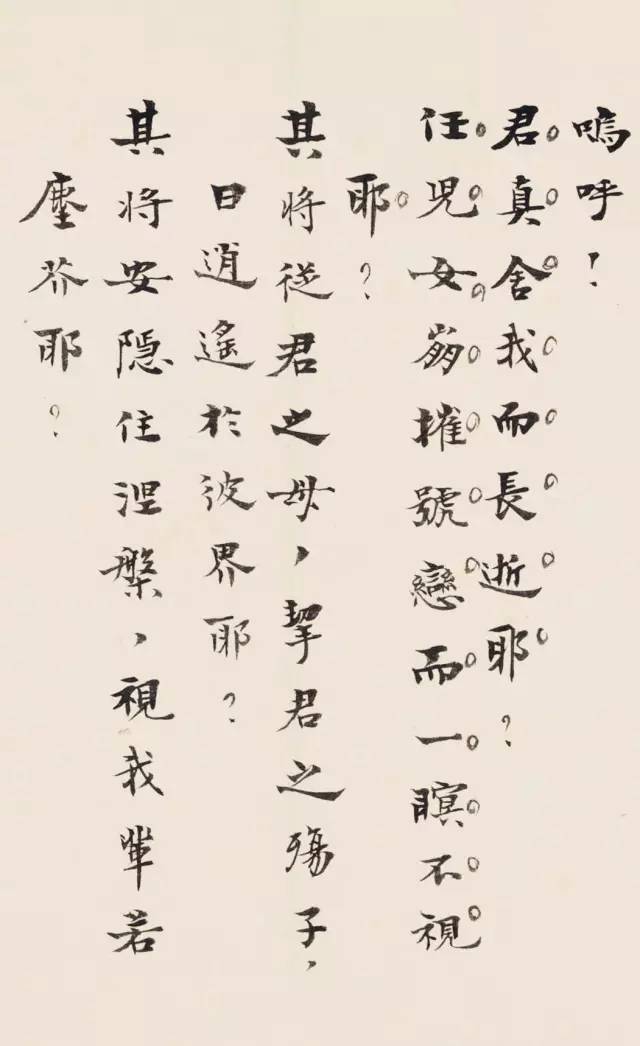 嗚呼！
君真舍我而長逝耶？
任兒女崩摧號戀而一瞑不視
耶？
其將從君之母，挈君之殤子，
日逍遙於彼界耶？
其將安隱住涅槃，視我輩若
塵芥耶？